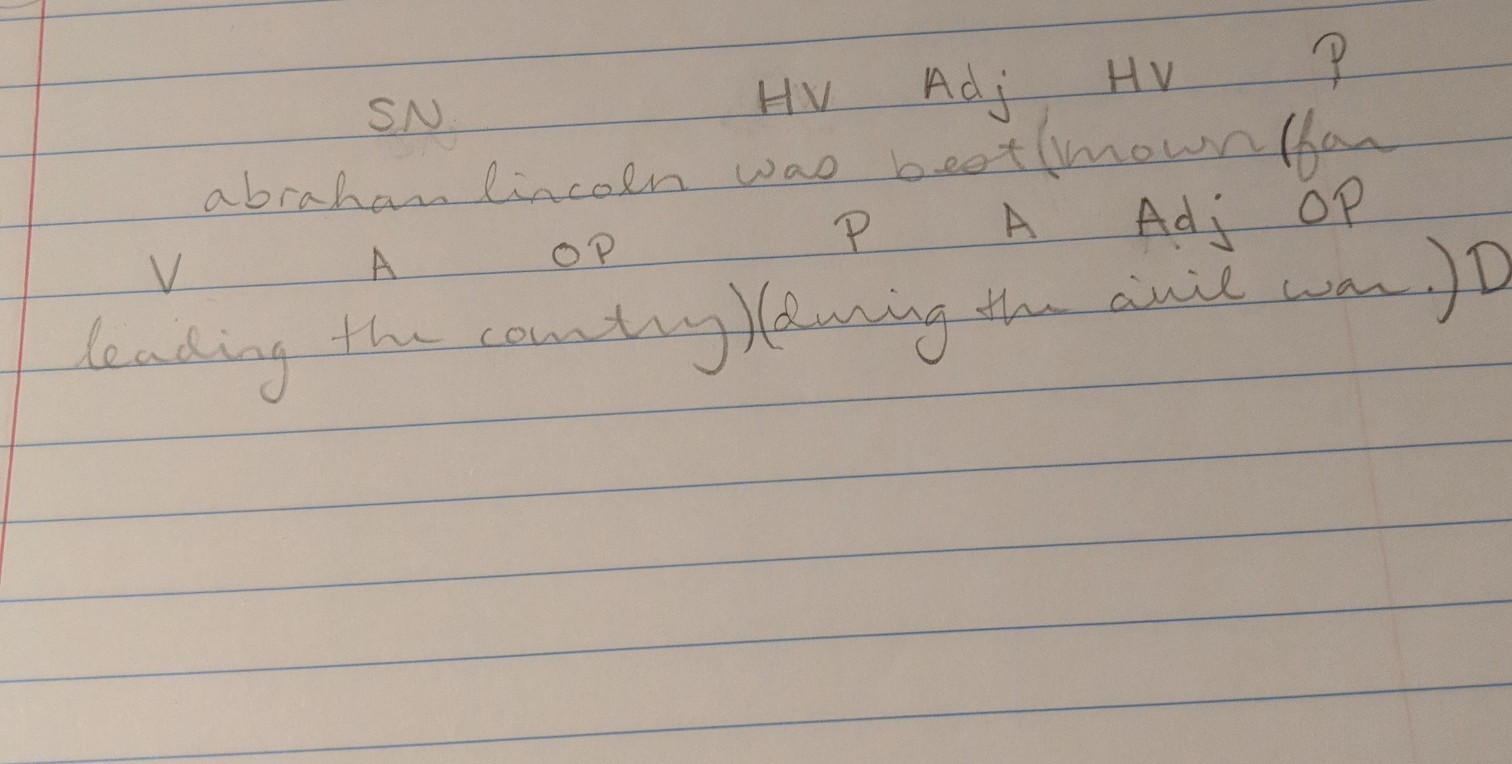 SN HV Adj HV P
abraham lincoln was best known (for
V A OP P A Adj OP
leading the country)(during the civil war.) D